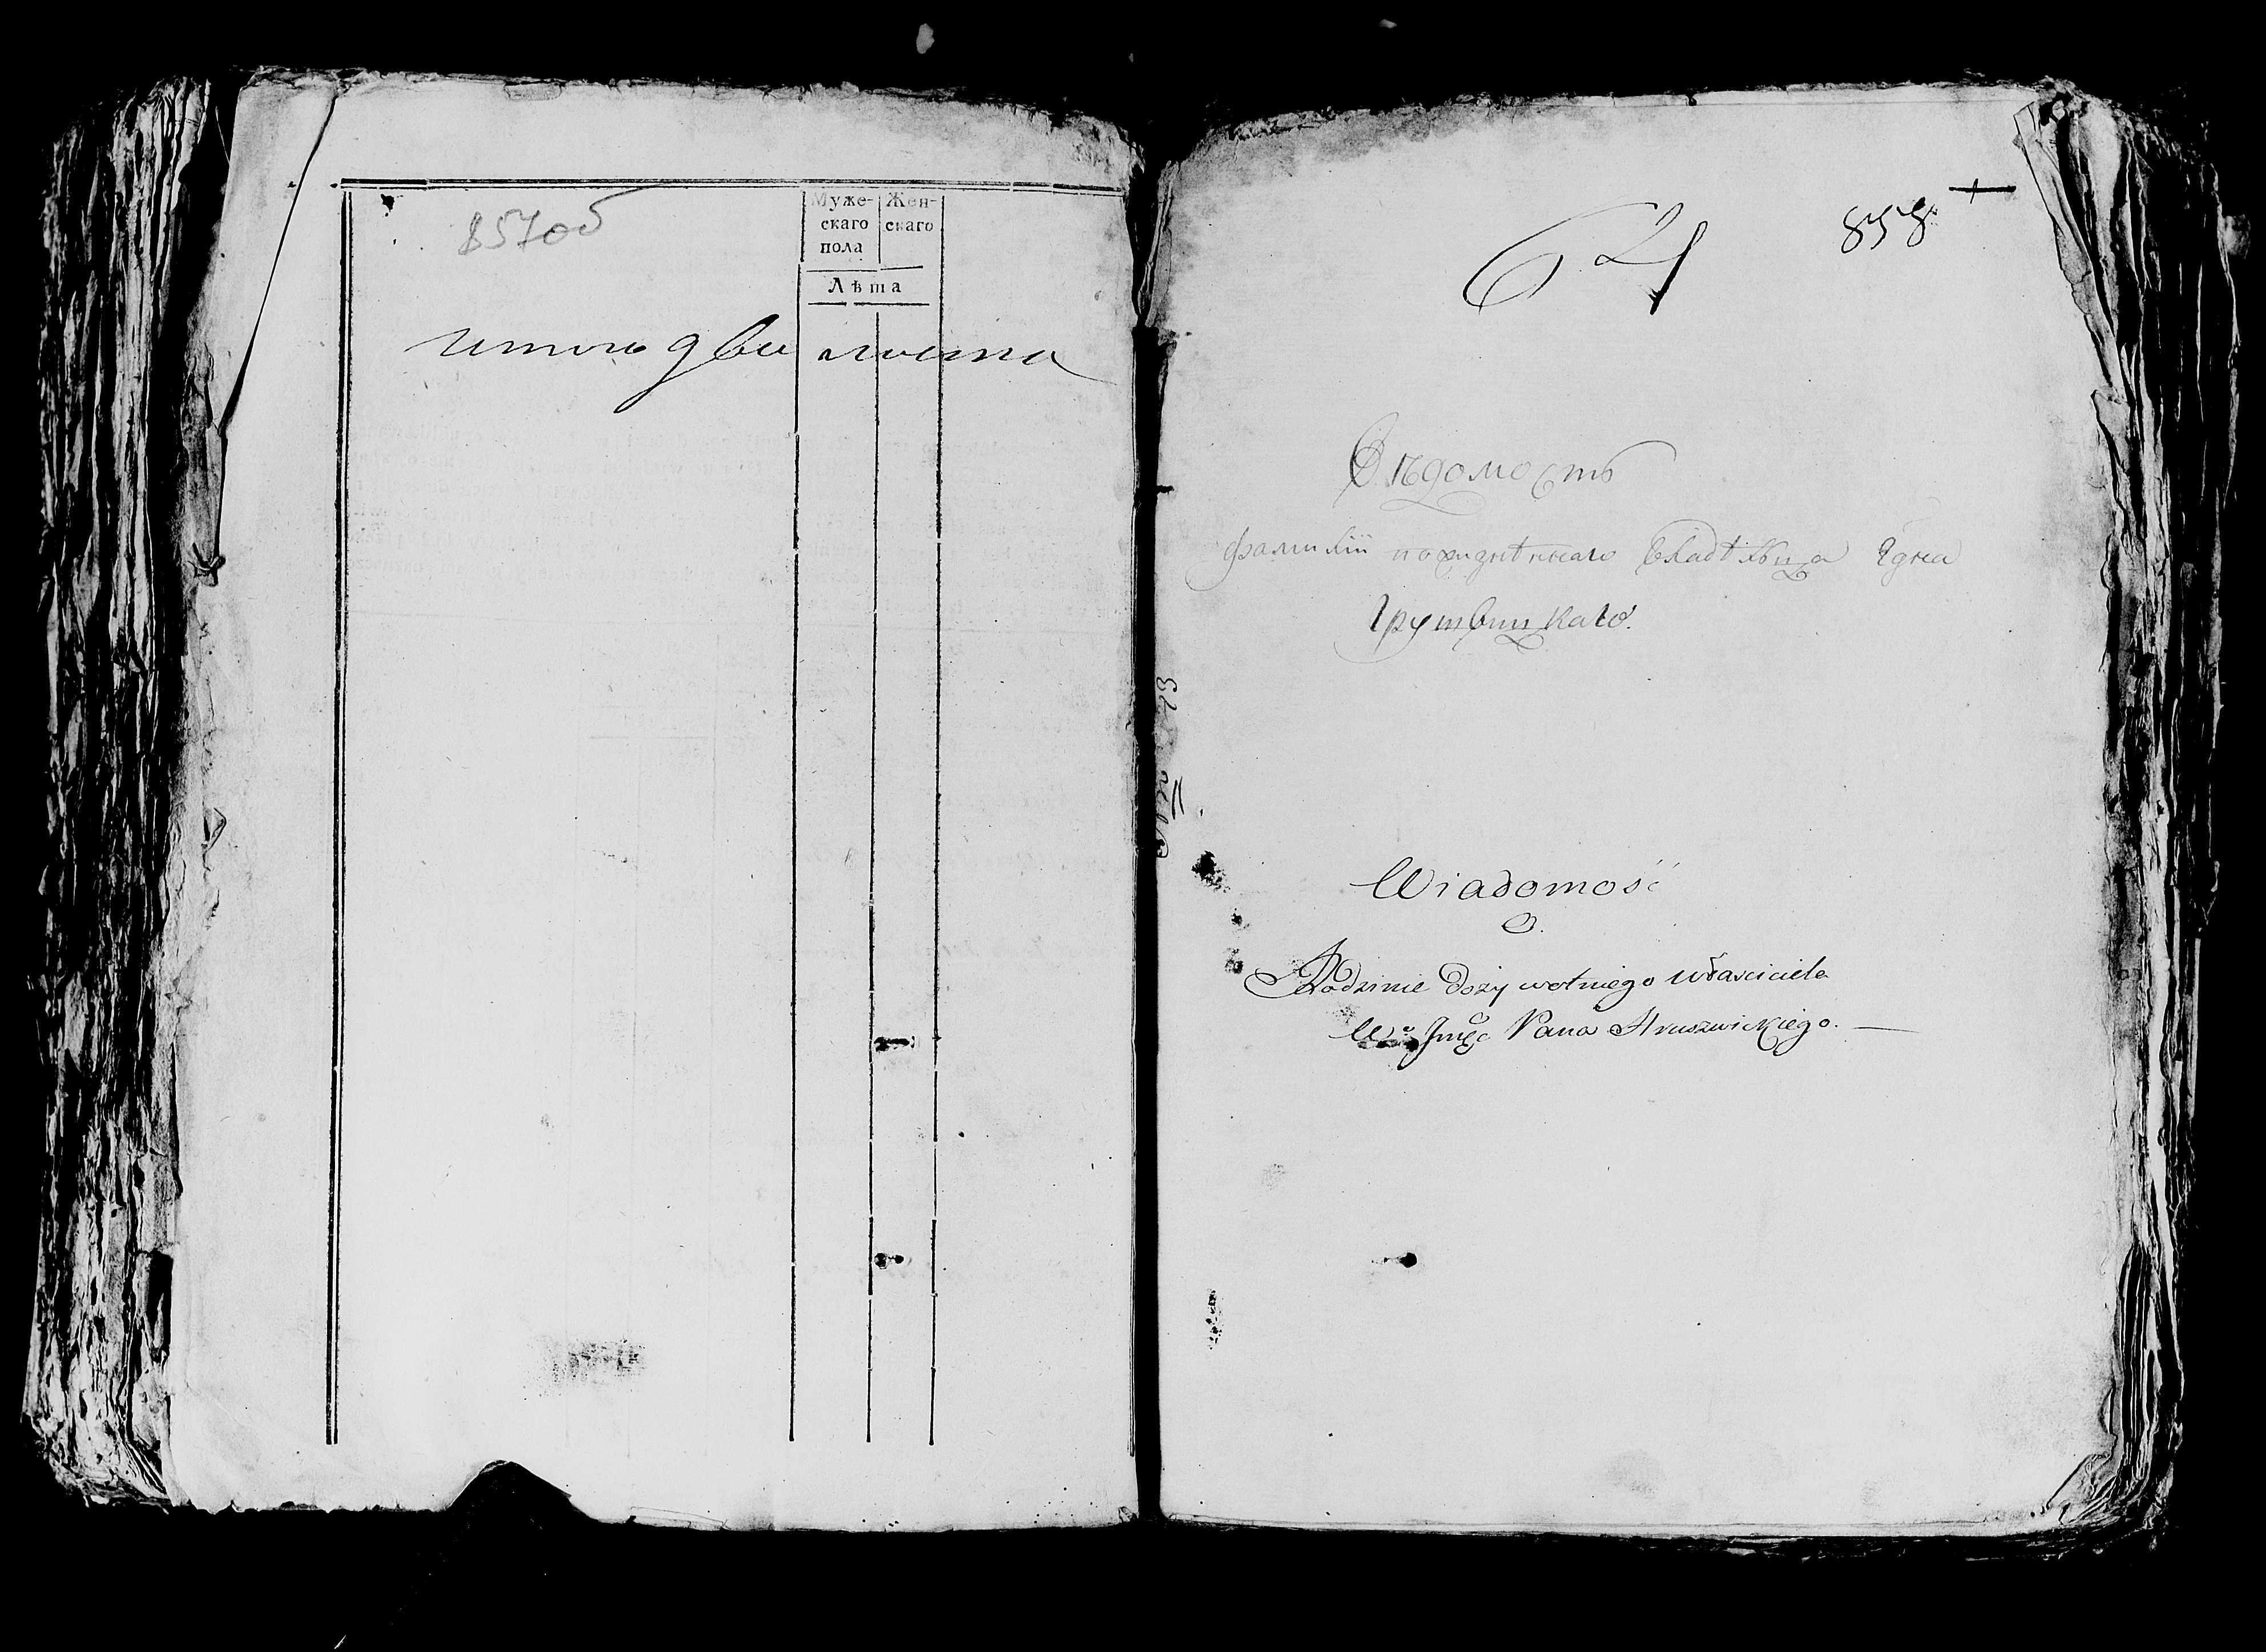 857об
Муже-
скаго
пола
Жен-
скаго
Лѣта
итого два листа
858
621
Вѣдомость
фамиліи пожизнѣннаго Владѣльца
Грушвицкаго.
Wiadomość
O.
Rodzinie Dożywotniego właściciela
Wo Jmći Pana Hruszwickiego.